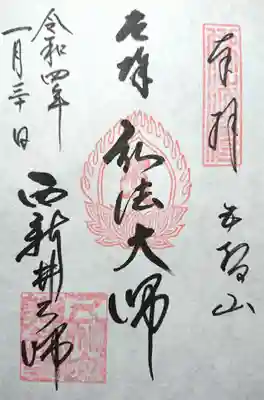 奉拝
五智山
厄除
弘法大師
西新井大師
令和四年
一月三十日